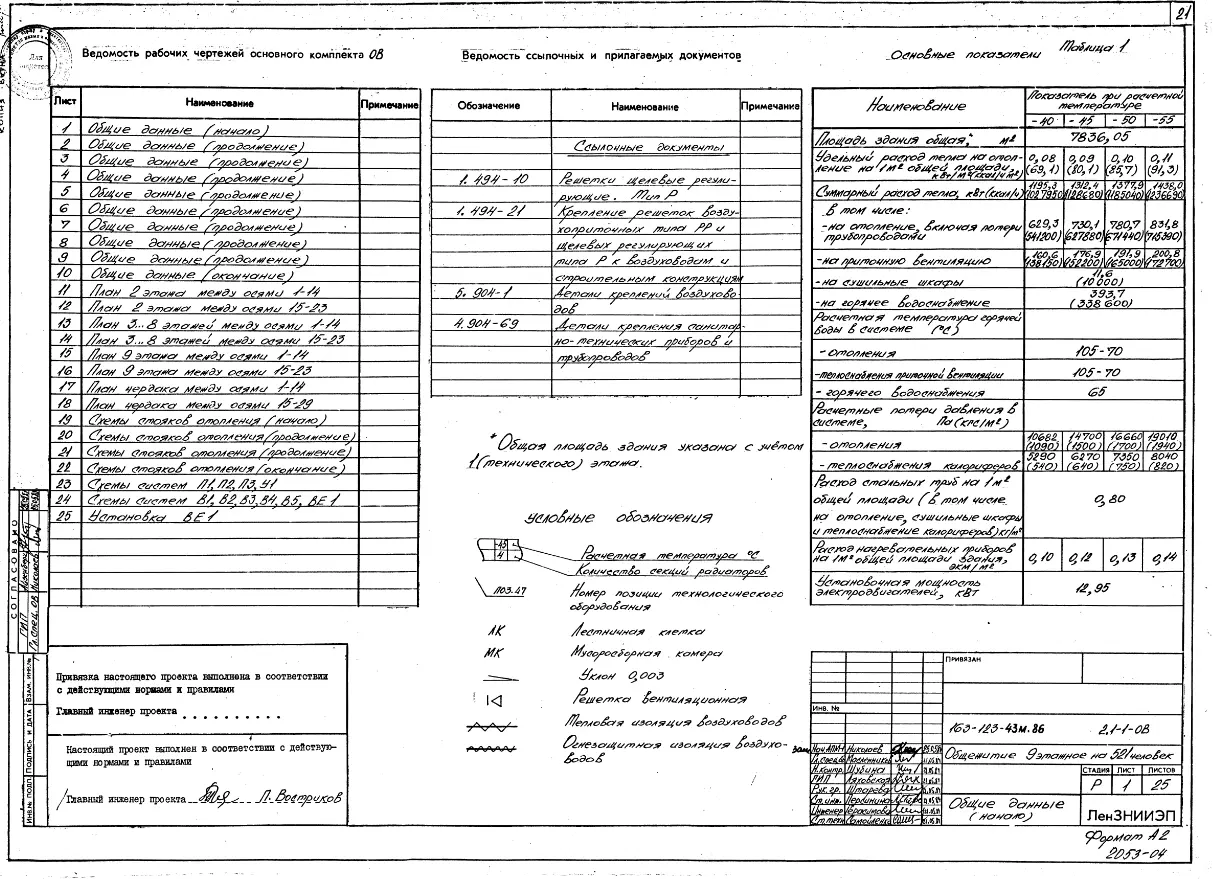 21
Для
Ведомость рабочих чертежей основного комплекта ОВ
Лист Наименование Примечание
1 Общие данные (начало)
2 Общие данные (продолжение)
3 Общие данные (продолжение)
4 Общие данные (продолжение)
5 Общие данные (продолжение)
6 Общие данные (продолжение)
7 Общие данные (продолжение)
8 Общие данные (продолжение)
9 Общие данные (продолжение)
10 Общие данные (окончание)
11 План 2 этажа между осями 1-14
12 План 2 этажа между осями 15-23
13 План 3...8 этажей между осями 1-14
14 План 3...8 этажей между осями 15-23
15 План 9 этажа между осями 1-14
16 План 9 этажа между осями 15-23
17 План чердака между осями 1-14
18 План чердака между осями 15-29
19 Схемы стояков отопления (начало)
20 Схемы стояков отопления (продолжение)
21 Схемы стояков отопления (продолжение)
22 Схемы стояков отопления (окончание)
23 Схемы систем П1, П2, П3, У1
24 Схемы систем В1, В2, В3, В4, В5, ВЕ1
25 Установка ВЕ1
Ведомость ссылочных и прилагаемых документов
Обозначение Наименование Примечание
Ссылочные документы
1.494-10 Решетки щелевые регули-
рующие. Тип Р
1.494-21 Крепление решеток возду-
хоприточных типа РР и
щелевых регулирующих
типа Р к воздуховодам и
строительным конструкциям
5.904-1 Детали креплений воздухово-
дов
4.904-69 Детали крепления санитар-
но-технических приборов и
трубопроводов
* Общая площадь здания указана с учётом
1 (технического) этажа.
Условные обозначения
15
4
Расчетная температура °С
Количество секций радиаторов
поз.47 Номер позиции технологического
оборудования
ЛК Лестничная клетка
МК Мусоросборная камера
Уклон 0,003
Решетка вентиляционная
Тепловая изоляция воздуховодов
Огнезащитная изоляция воздухо-
водов
Основные показатели Таблица 1
Наименование
Показатель при расчетной
температуре
-40 -45 -50 -55
Площадь здания общая,* м² 7836,05
Удельный расход тепла на отоп-
ление на 1м² общей площади,
квт/м²(ккал/ч м²)
0,08 0,09 0,10 0,11
(69,1) (80,1) (85,7) (91,3)
Суммарный расход тепла, квт(ккал/ч)
1195,3 1312,4 1377,9 1438,0
(1027950) (1128680) (1185040) (1236690)
в том числе:
-на отопление, включая потери
трубопроводами
629,3 730,1 780,7 831,8
(541200) (627880) (671440) (715390)
-на приточную вентиляцию
160,6 176,9 191,9 200,8
(138150) (152200) (165000) (172700)
-на сушильные шкафы
11,6
(10000)
-на горячее водоснабжение
393,7
(338600)
Расчетная температура горячей
воды в системе (°С)
-отопления 105-70
-теплоснабжения приточной вентиляции 105-70
-горячего водоснабжения 65
Расчетные потери давления в
системе, Па(кгс/м²)
-отопления
10682 14700 16660 19010
(1090) (1500) (1700) (1940)
-теплоснабжения калориферов
5290 6270 7350 8040
(540) (640) (750) (820)
Расход стальных труб на 1м²
общей площади (в том числе
на отопление, сушильные шкафы
и теплоснабжение калориферов) кг/м²
0,80
Расход нагревательных приборов
на 1м² общей площади здания,
экм/м²
0,10 0,12 0,13 0,14
Установочная мощность
электродвигателей, кВт
12,95
СОГЛАСОВАНО
ГИП
Гл.спец.ОВ
ВЗАМ. ИНВ.№
Подпись и дата
ИНВ.№ подл
Привязка настоящего проекта выполнена в соответствии
с действующими нормами и правилами
Главный инженер проекта . . . . . . . . . .
Настоящий проект выполнен в соответствии с действую-
щими нормами и правилами
Главный инженер проекта Л. Востриков
ПРИВЯЗАН
ИНВ. №
163-123-43м.86 2.1-1-ОВ
Общежитие 9этажное на 521 человек
Нач.АПИ Николаев
Н.контр. Шубина
ГИП
Рук. гр. Штарева
Ст.инж. Первинина
Инженер Герасимова
Ст.техн. Самойленко
СТАДИЯ ЛИСТ ЛИСТОВ
Р 1 25
Общие данные
(начало)
ЛенЗНИИЭП
Формат А2
2053-04